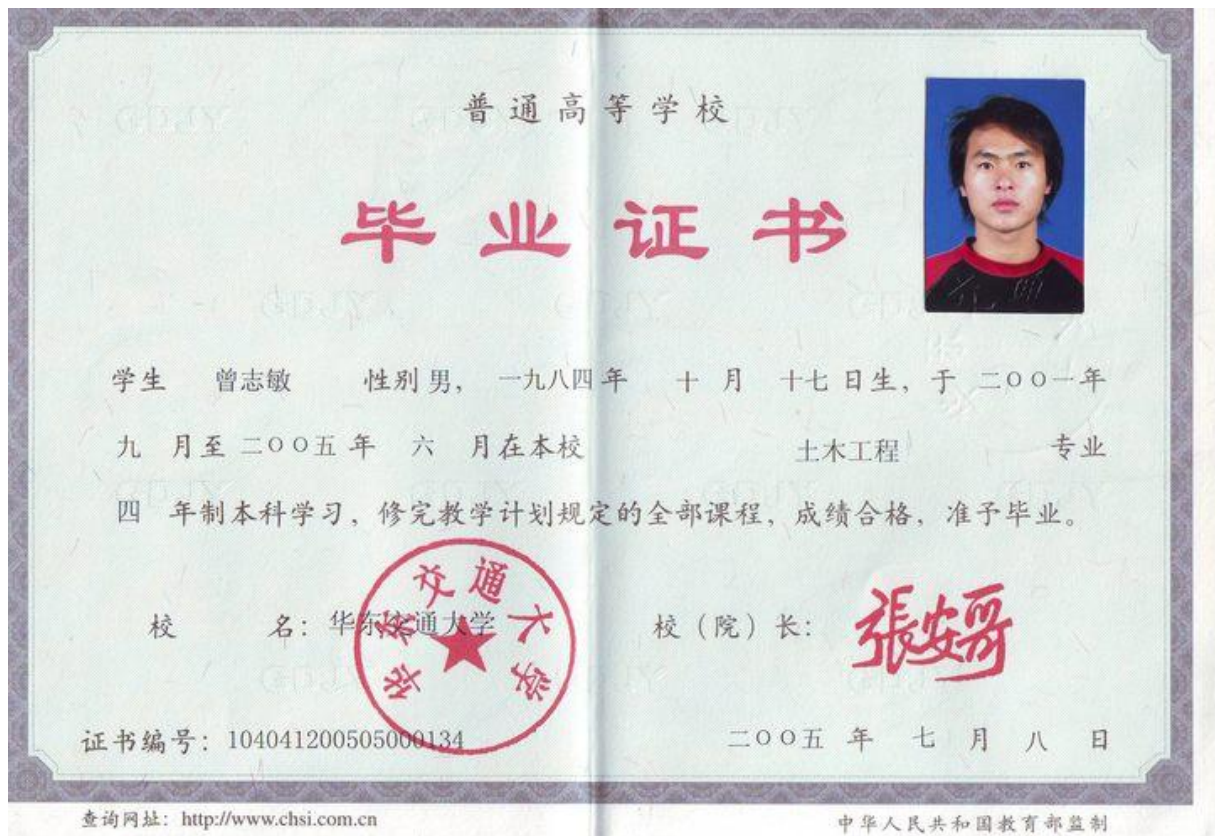 普通高等学校
毕业证书
学生 曾志敏 性别 男， 一九八四 年 十 月 十七 日生，于 二〇〇一年
九 月至 二〇〇五 年 六 月在本校 土木工程 专业
四 年制本科学习，修完教学计划规定的全部课程，成绩合格，准予毕业。
华东交通大学
校 名：华东交通大学 校（院）长：張安哥
证书编号：104041200505000134 二〇〇五 年 七 月 八 日
查询网址：http://www.chsi.com.cn 中华人民共和国教育部监制